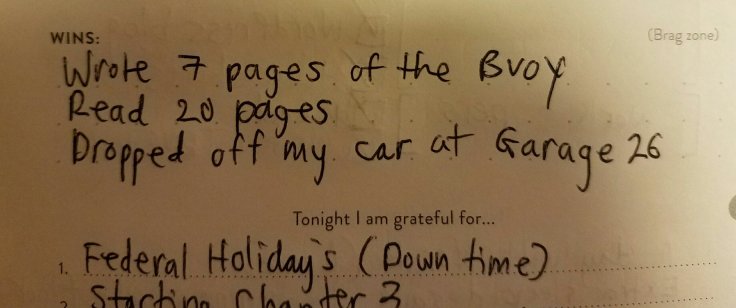 WINS:
(Brag zone)
Wrote 7 pages of the Bvoy
Read 20 pages
Dropped off my car at Garage 26
Tonight I am grateful for...
1. Federal Holiday's (Down time)
2 Starting Chapter 3